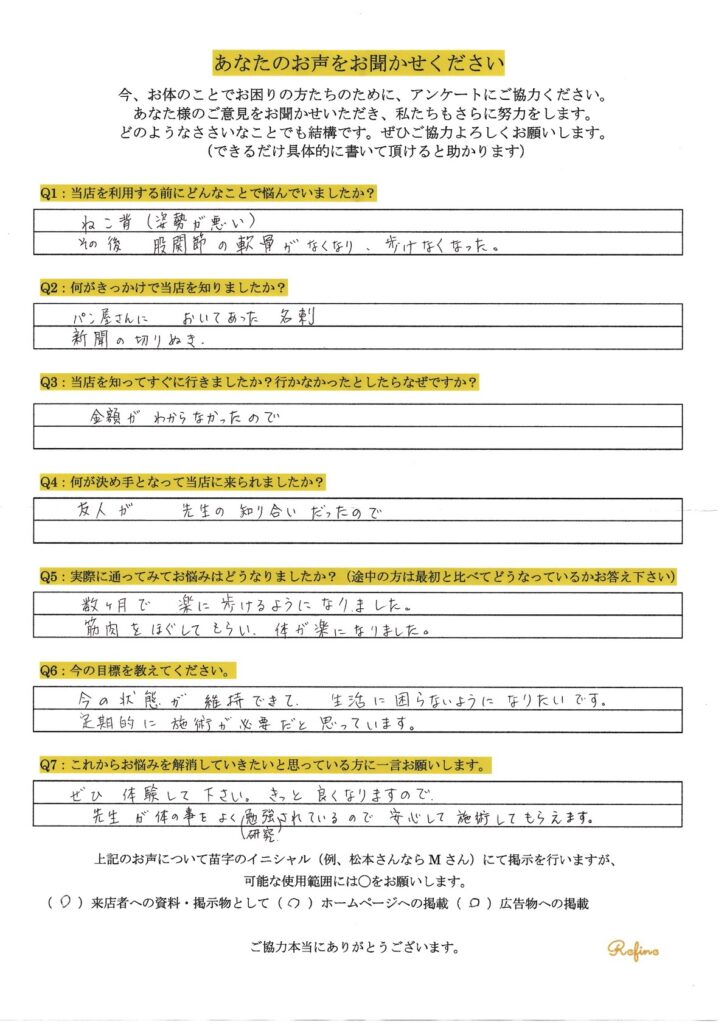 あなたのお声をお聞かせください
今、お体のことでお困りの方たちのために、アンケートにご協力ください。
あなた様のご意見をお聞かせいただき、私たちもさらに努力をします。
どのようなささいなことでも結構です。ぜひご協力よろしくお願いします。
（できるだけ具体的に書いて頂けると助かります）
Q1：当店を利用する前にどんなことで悩んでいましたか？
ねこ背（姿勢が悪い）
その後 股関節の軟骨がなくなり、歩けなくなった。
Q2：何がきっかけで当店を知りましたか？
パン屋さんに おいてあった 名刺
新聞の切りぬき.
Q3：当店を知ってすぐに行きましたか？行かなかったとしたらなぜですか？
金額が わからなかったので
Q4：何が決め手となって当店に来られましたか？
友人が 先生の 知り合い だったので
Q5：実際に通ってみてお悩みはどうなりましたか？（途中の方は最初と比べてどうなっているかお答え下さい）
数ヶ月で 楽に歩けるようになりました。
筋肉をほぐしてもらい、体が楽になりました。
Q6：今の目標を教えてください。
今の状態が 維持できて、生活に困らないように なりたいです。
定期的に 施術が必要だと思っています。
Q7：これからお悩みを解消していきたいと思っている方に一言お願いします。
ぜひ 体験して下さい。きっと 良くなりますので、
先生が体の事をよく(勉強)されているので 安心して 施術してもらえます。
(研究)
上記のお声について苗字のイニシャル（例、松本さんならMさん）にて掲示を行いますが、
可能な使用範囲には〇をお願いします。
（〇）来店者への資料・掲示物として（〇）ホームページへの掲載（〇）広告物への掲載
ご協力本当にありがとうございます。
Refine